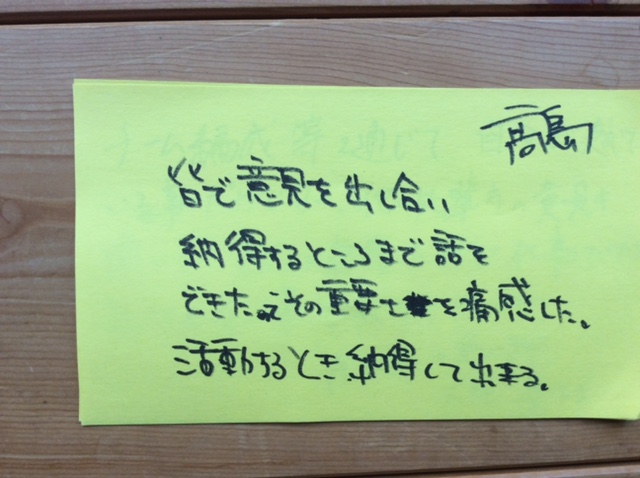 高島
皆で意見を出し合い
納得するところまで話を
できた。その重要さを痛感した。
活動するとき納得して出来る。